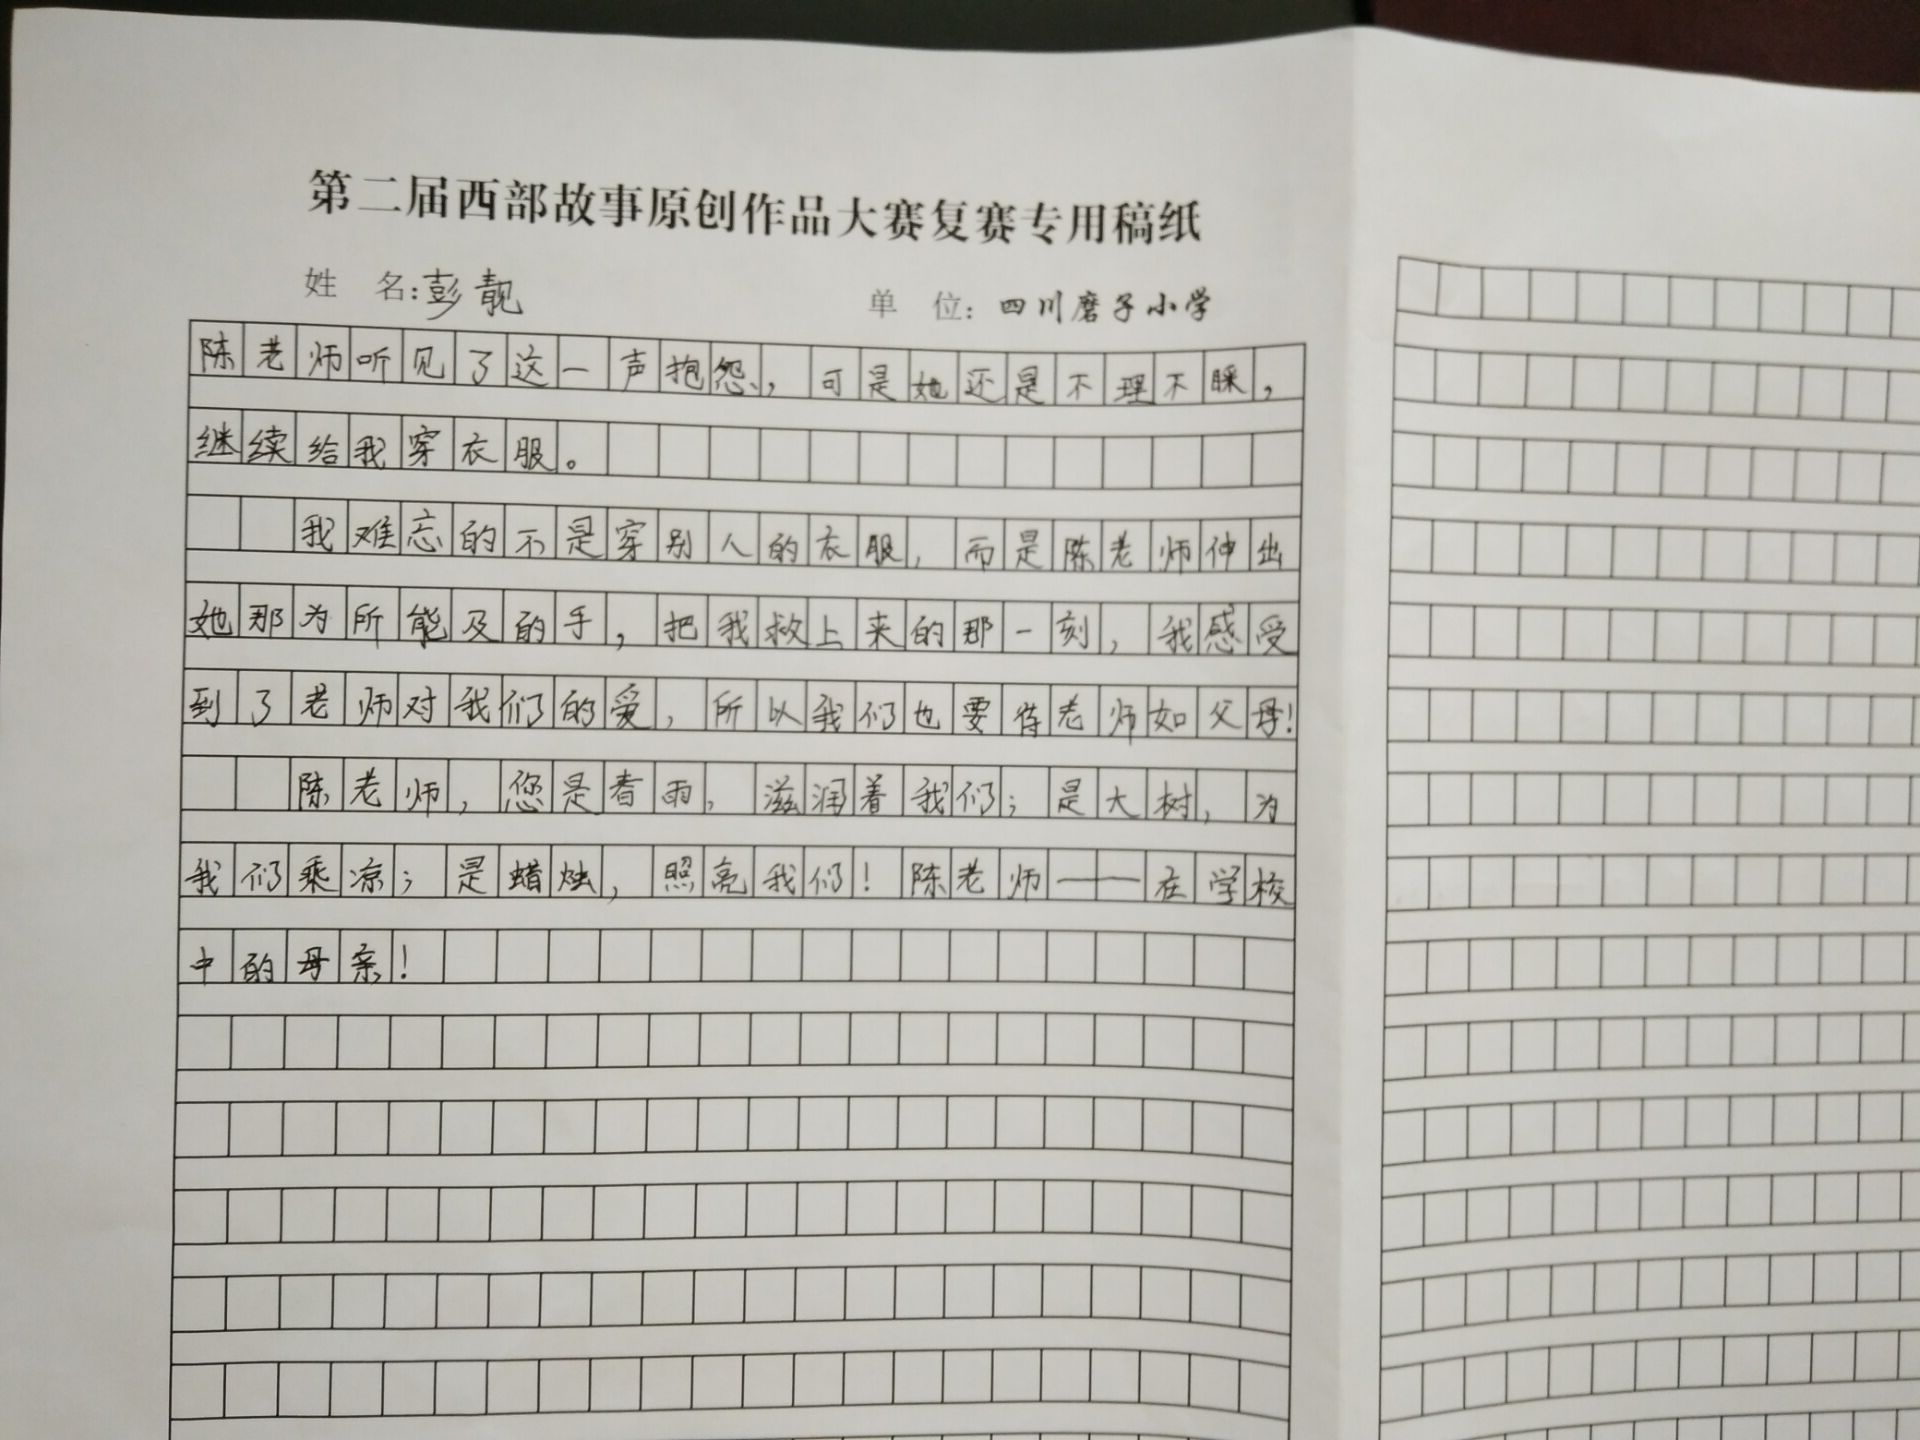 第二届西部故事原创作品大赛复赛专用稿纸
姓 名:彭靓 单 位:四川磨子小学
陈老师听见了这一声抱怨,可是她还是不理不睬,
继续给我穿衣服。
我难忘的不是穿别人的衣服,而是陈老师伸出
她那为所能及的手,把我救上来的那一刻,我感受
到了老师对我们的爱,所以我们也要待老师如父母!
陈老师,您是春雨,滋润着我们;是大树,为
我们乘凉;是蜡烛,照亮我们!陈老师——在学校
中的母亲!